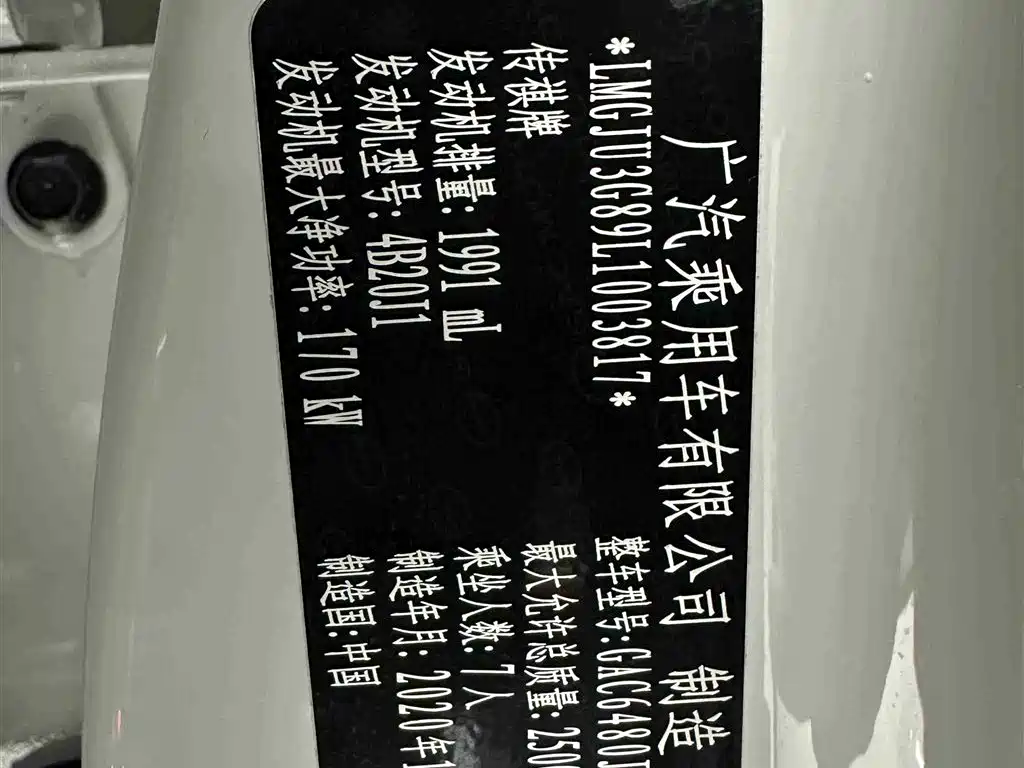 广汽乘用车有限公司 制造
*LMGJU3G89L1003817*
整车型号:GAC6480J
传祺牌
最大允许总质量:250
发动机排量:1991 mL
乘坐人数:7人
发动机型号:4B20J1
制造年月:2020年1
发动机最大净功率:170 kW
制造国:中国